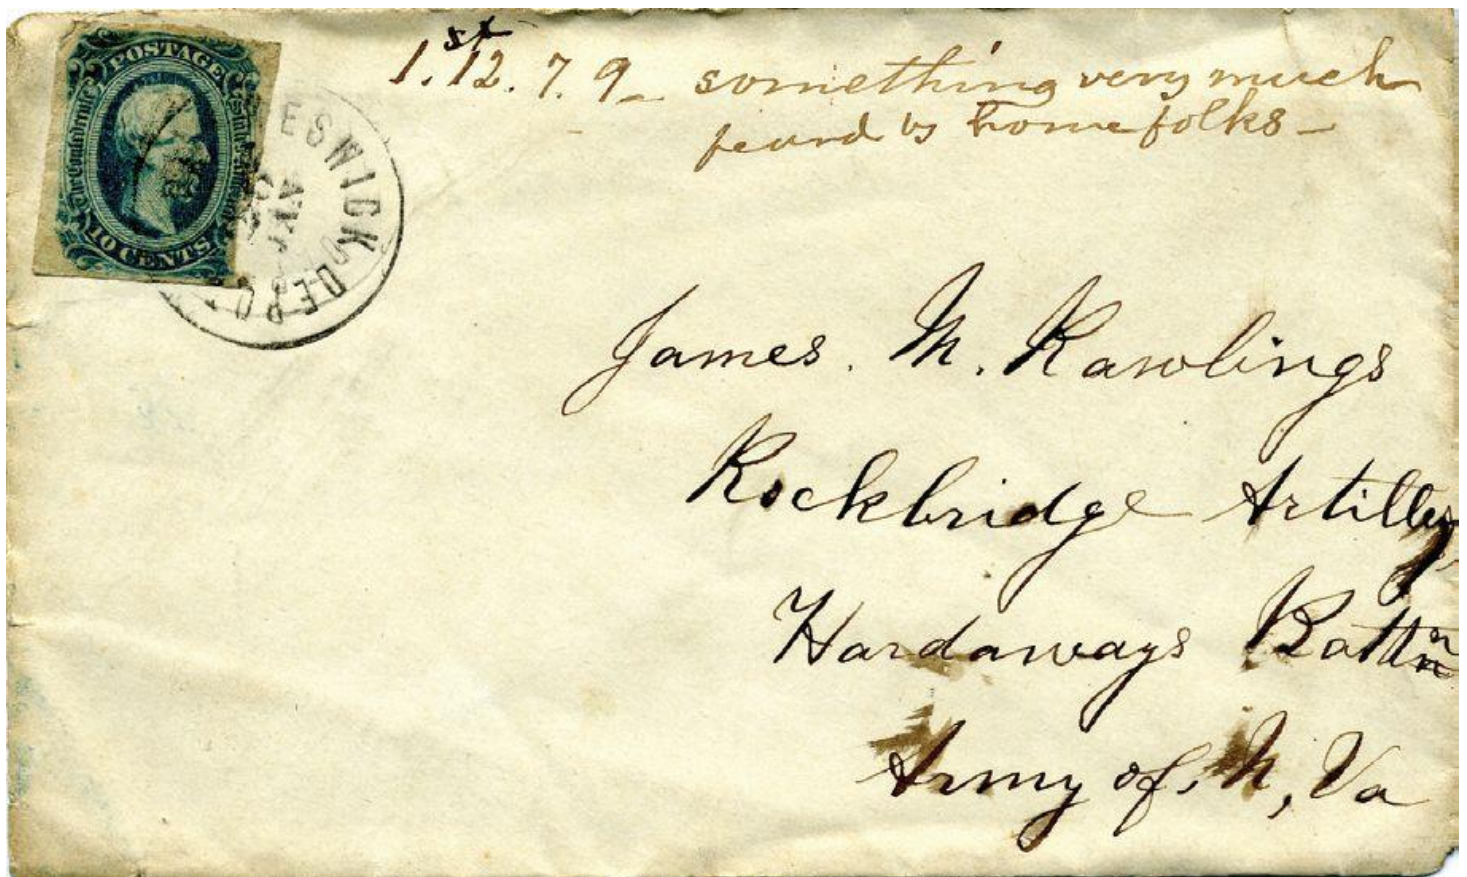 POSTAGE
The Confederate States of America
10 CENTS
ESWICK DEPOT
1.st 12. 7. 9 - something very much
feard by home folks -
James. M. Rawlings
Rockbridge Artillery
Hardaways Battn
Army of, N, Va